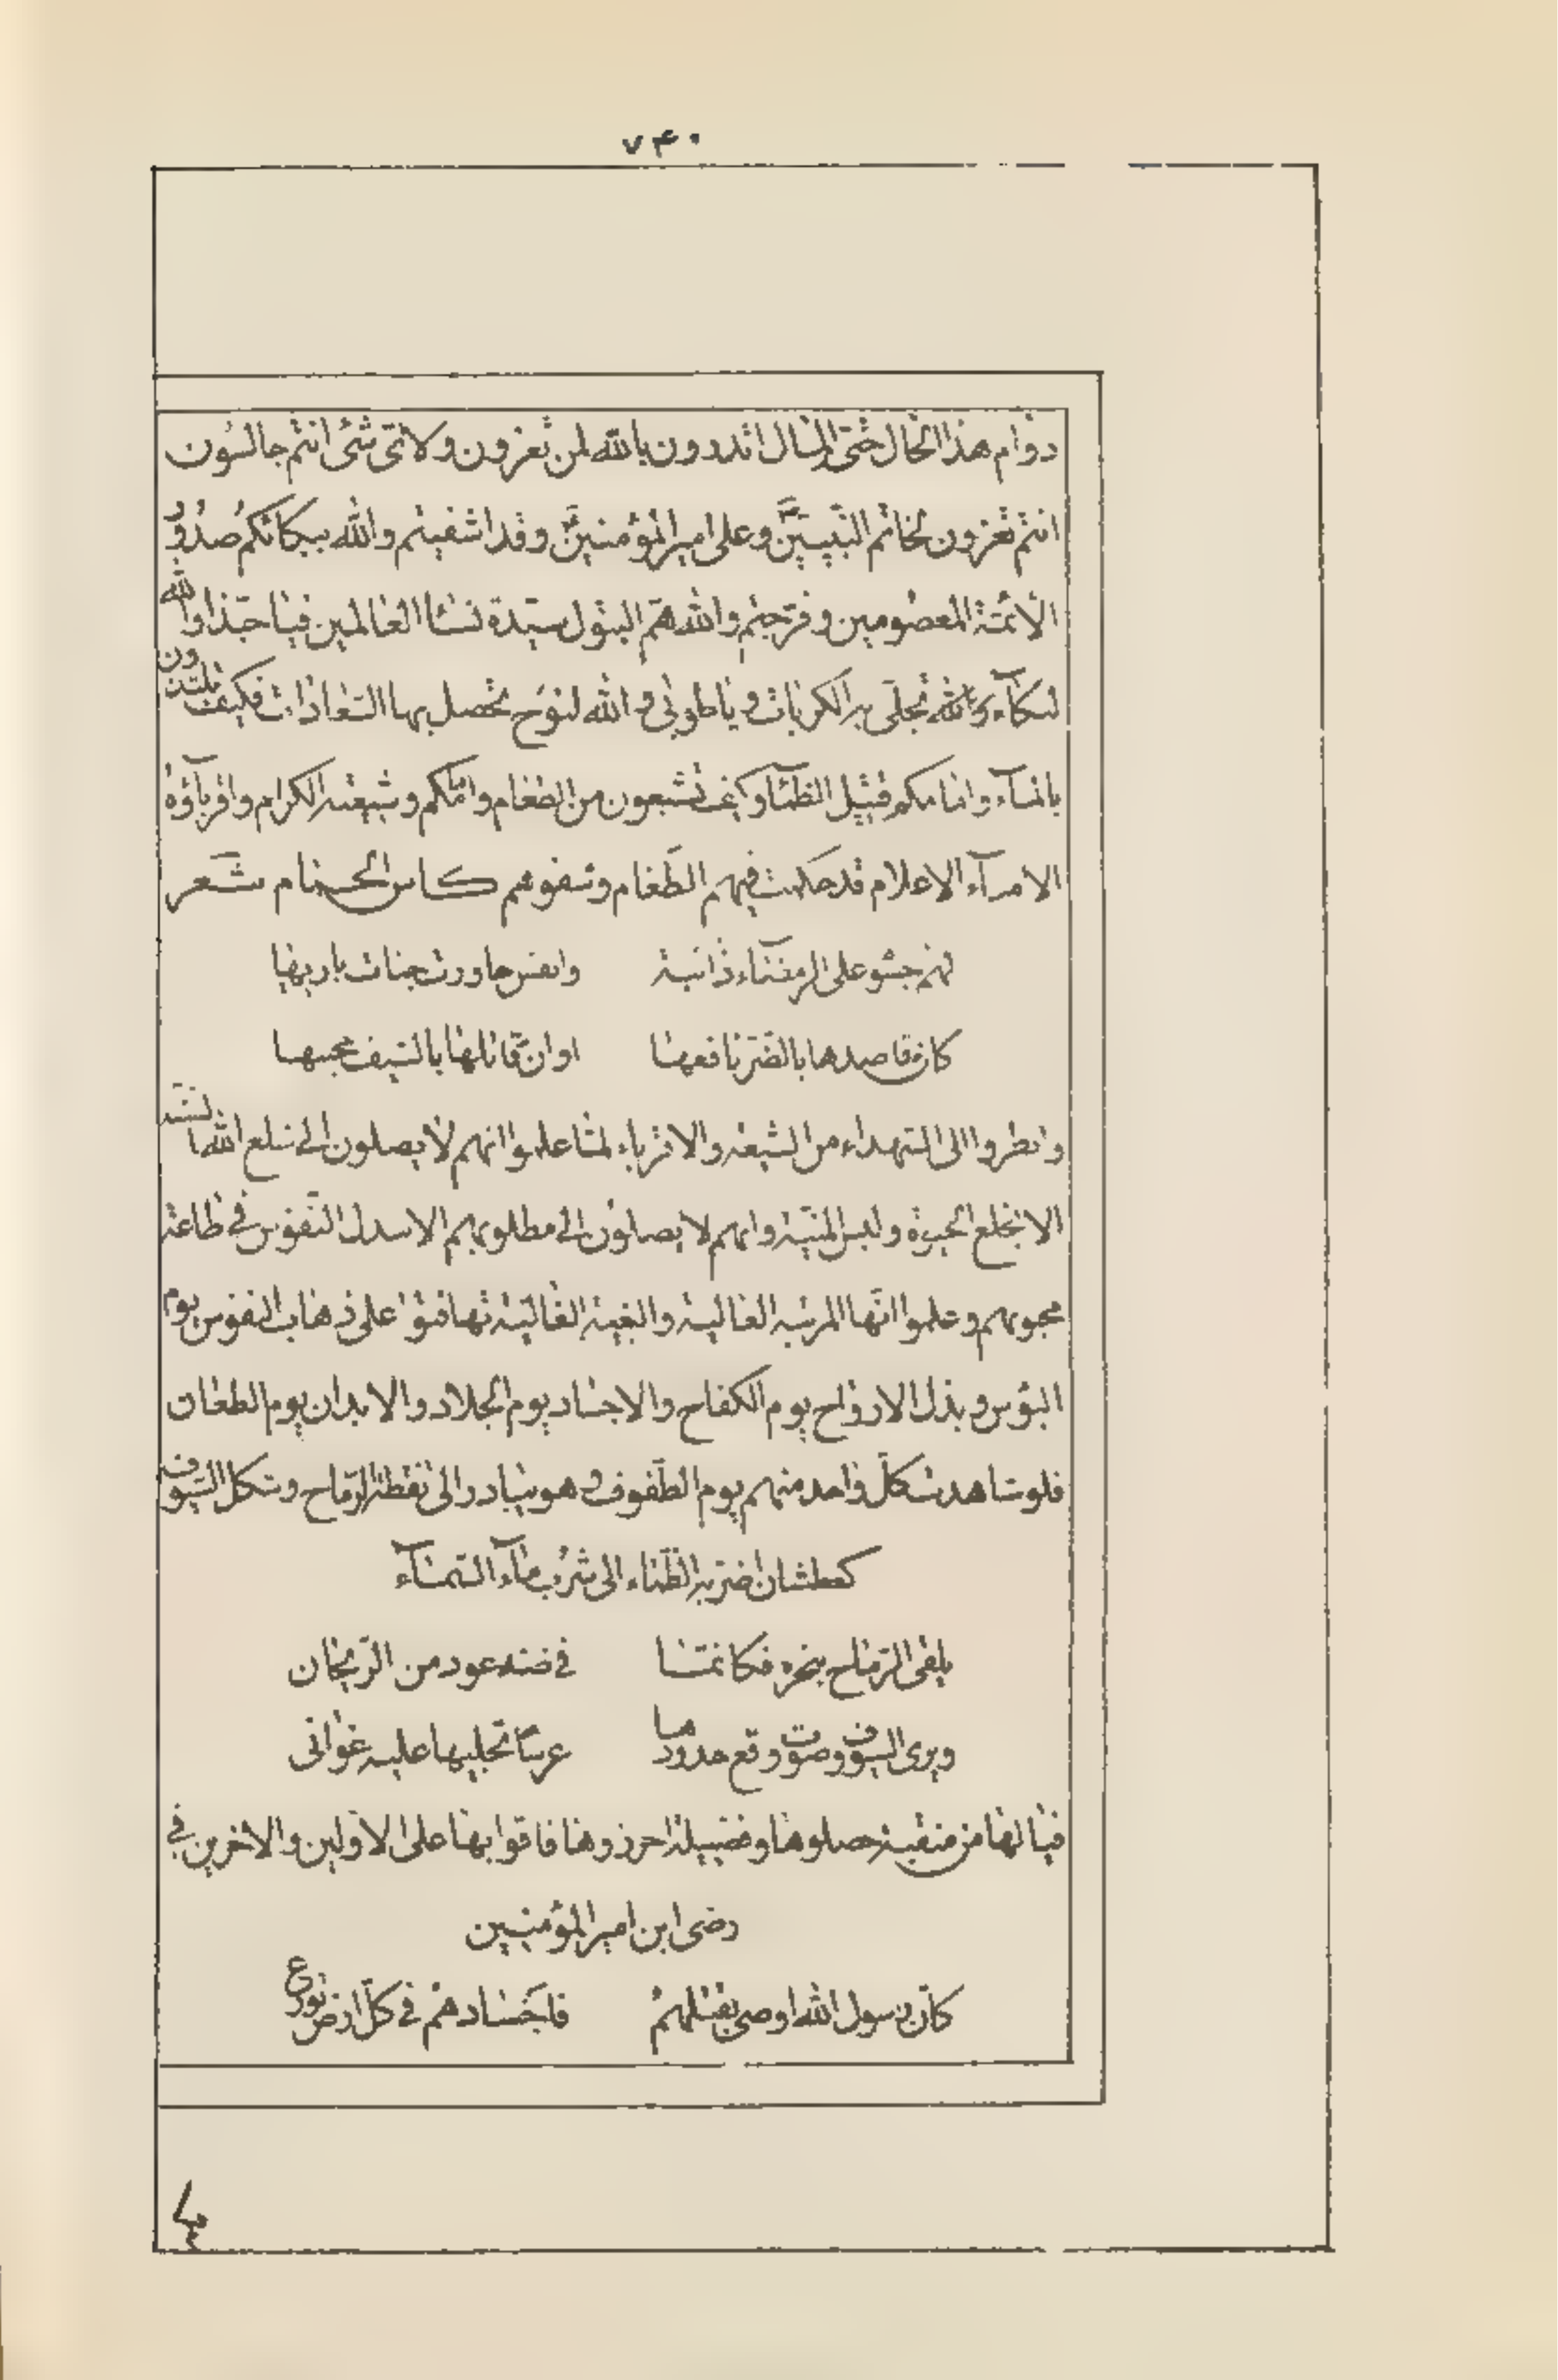 ۷۴۰
دوام هذا الحال حتى المنال اتدرون بالله لمن تعزون ولاى شئ انتم جالسون
انتم تعزون لخاتم النبيين وعلى امير المؤمنين وقد اشفيتم والله ببكائكم صدور
الائمة المعصومين وفرجتم والله هم البتول سيدة نساء العالمين فيا حبذا والله
لبكآء والله تجلى به الكربات ويا طوبى والله لنوح تحصل بها السعادات فكيف تلتذون
بالمآء وامامكم قتيل الظمآ وكيف تشبعون من الطعام وامامكم وشيعته الكرام واقرباؤه
الامرآء الاعلام قد حكمت فيهم الطغام وسقوهم كاس الحمام شعر
لهم جسو على الرمضاء ذائبة وانفس جاورت جنات باريها
كان قاصدها بالضر نافعها اوان قاتلها بالسيف محييها
وانظروا الى الشهداء من الشيعة والاقرباء لما علموا انهم لا يصلون الى سلع الله
الا بخلع الحيوة ولبس المنية وانهم لا يصلون الى مطلوبهم الا ببذل النفوس في طاعة
محبوبهم وعلموا انها المرتبة العالية والبغية الغالية تهافتوا على ذهاب النفوس يوم
البؤس وبذل الارواح يوم الكفاح والاجساد يوم الجلاد والابدان يوم الطعان
فلو شاهدت كل واحد منهم يوم الطفوف وهو يبادر الى نقطة الرماح وشكل السيوف
كعطشان اضر به الظماء الى شرب مآء السمآء
يلقى الرماح بنحره فكانما في ضنه عود من الريحان
ويرى السيوف وصوت وقع حدودها عرسا تجليها عليه غوانى
فيا لها من منقبة حصلوها وفضيلة احرزوها فاقوا بها على الاولين والاخرين في
رضى ابن امير المؤمنين
كان رسول الله اوصى بقتلهم فاجسادهم في كل ارض توزع